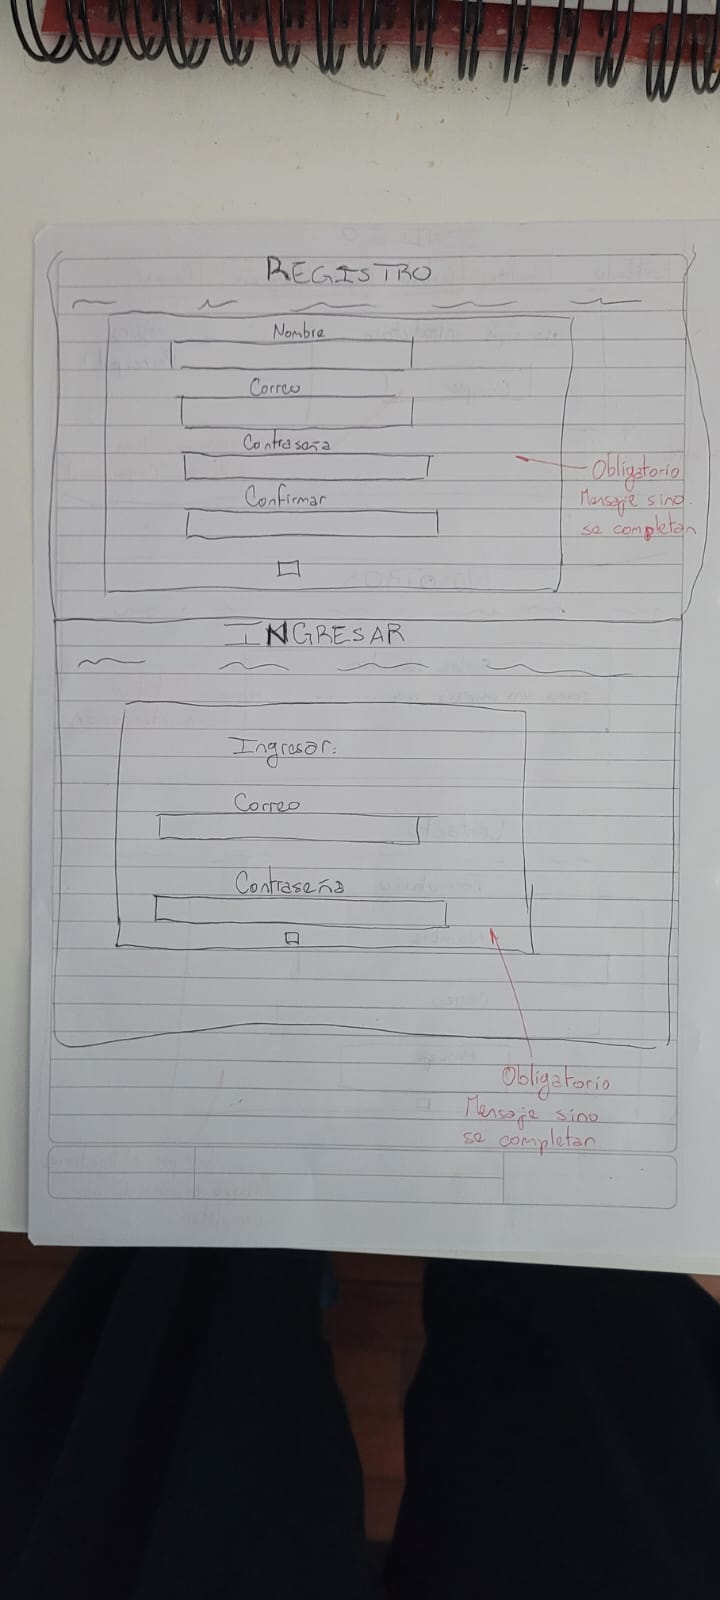 REGISTRO
Nombre
Correo
Contraseña
Confirmar
Obligatorio
Mensaje sino
se completan
INGRESAR
Ingresar:
Correo
Contraseña
Obligatorio
Mensaje sino
se completan